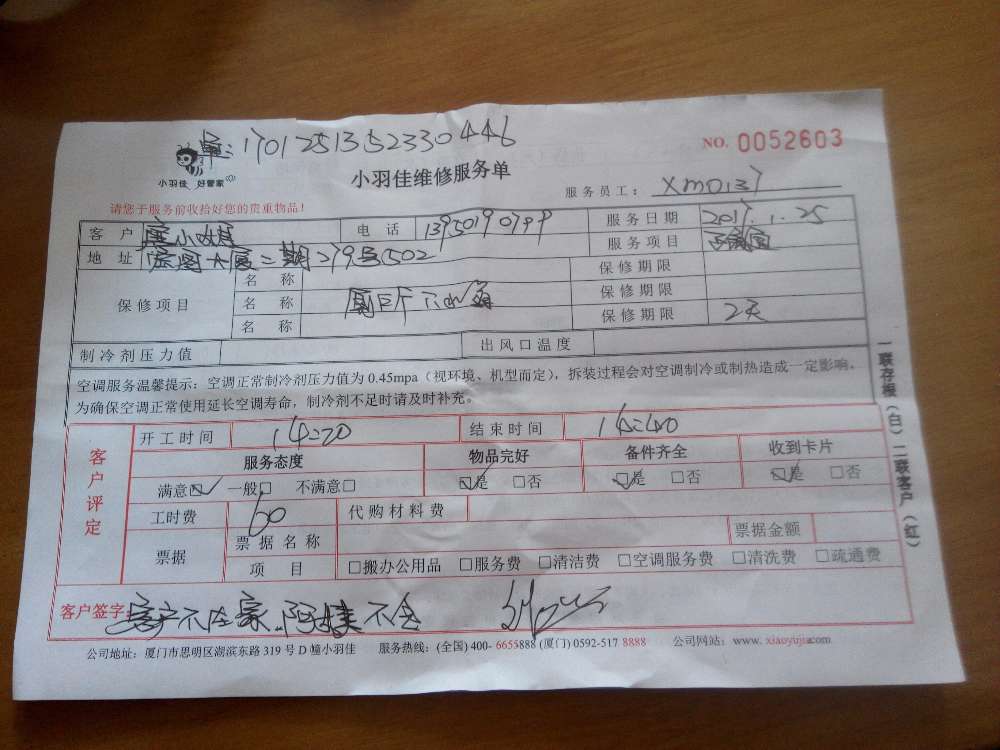 单:1701251352330446
NO. 0052603
小羽佳 好管家
小羽佳维修服务单
服务员工: XM0137
请您于服务前收拾好您的贵重物品!
客户 小 电话 13950190799 服务日期 2017.1.25
地址 大厦二期79号502 服务项目
保修项目 名称 保修期限
名称 保修期限
名称 保修期限 2天
制冷剂压力值 出风口温度
空调服务温馨提示: 空调正常制冷剂压力值为 0.45mpa(视环境、机型而定), 拆装过程会对空调制冷或制热造成一定影响,
为确保空调正常使用延长空调寿命, 制冷剂不足时请及时补充。
客户评定
开工时间 14:20 结束时间 14:40
服务态度 物品完好 备件齐全 收到卡片
满意☑ 一般□ 不满意□ ☑是 □否 ☑是 □否 ☑是 □否
工时费 60 代购材料费
票据 票据名称 票据金额
项目 □搬办公用品 □服务费 □清洁费 □空调服务费 □清洗费 □疏通费
客户签字: 客户不在家.阿姨不会
公司地址: 厦门市思明区湖滨东路 319 号 D 幢小羽佳 服务热线: (全国) 400- 6655888 (厦门) 0592-517 8888 公司网站: www. xiaoyujia.com
一联存根(白)二联客户(红)